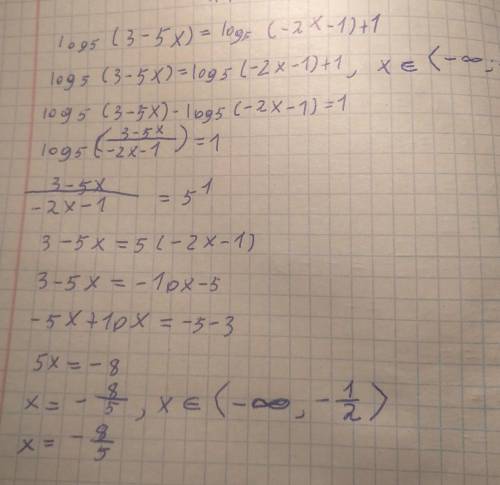 log₅ (3-5x) = log₅ (-2x-1)+1
log₅ (3-5x) = log₅(-2x-1)+1, x ∈ ⟨-∞;
log₅ (3-5x) - log₅(-2x-1)=1
log₅ (\frac{3-5x}{-2x-1})=1
\frac{3-5x}{-2x-1} = 5¹
3-5x = 5(-2x-1)
3-5x = -10x-5
-5x+10x = -5-3
5x = -8
x = -\frac{8}{5}, x ∈ ⟨-∞, -\frac{1}{2}⟩
x = -\frac{8}{5}